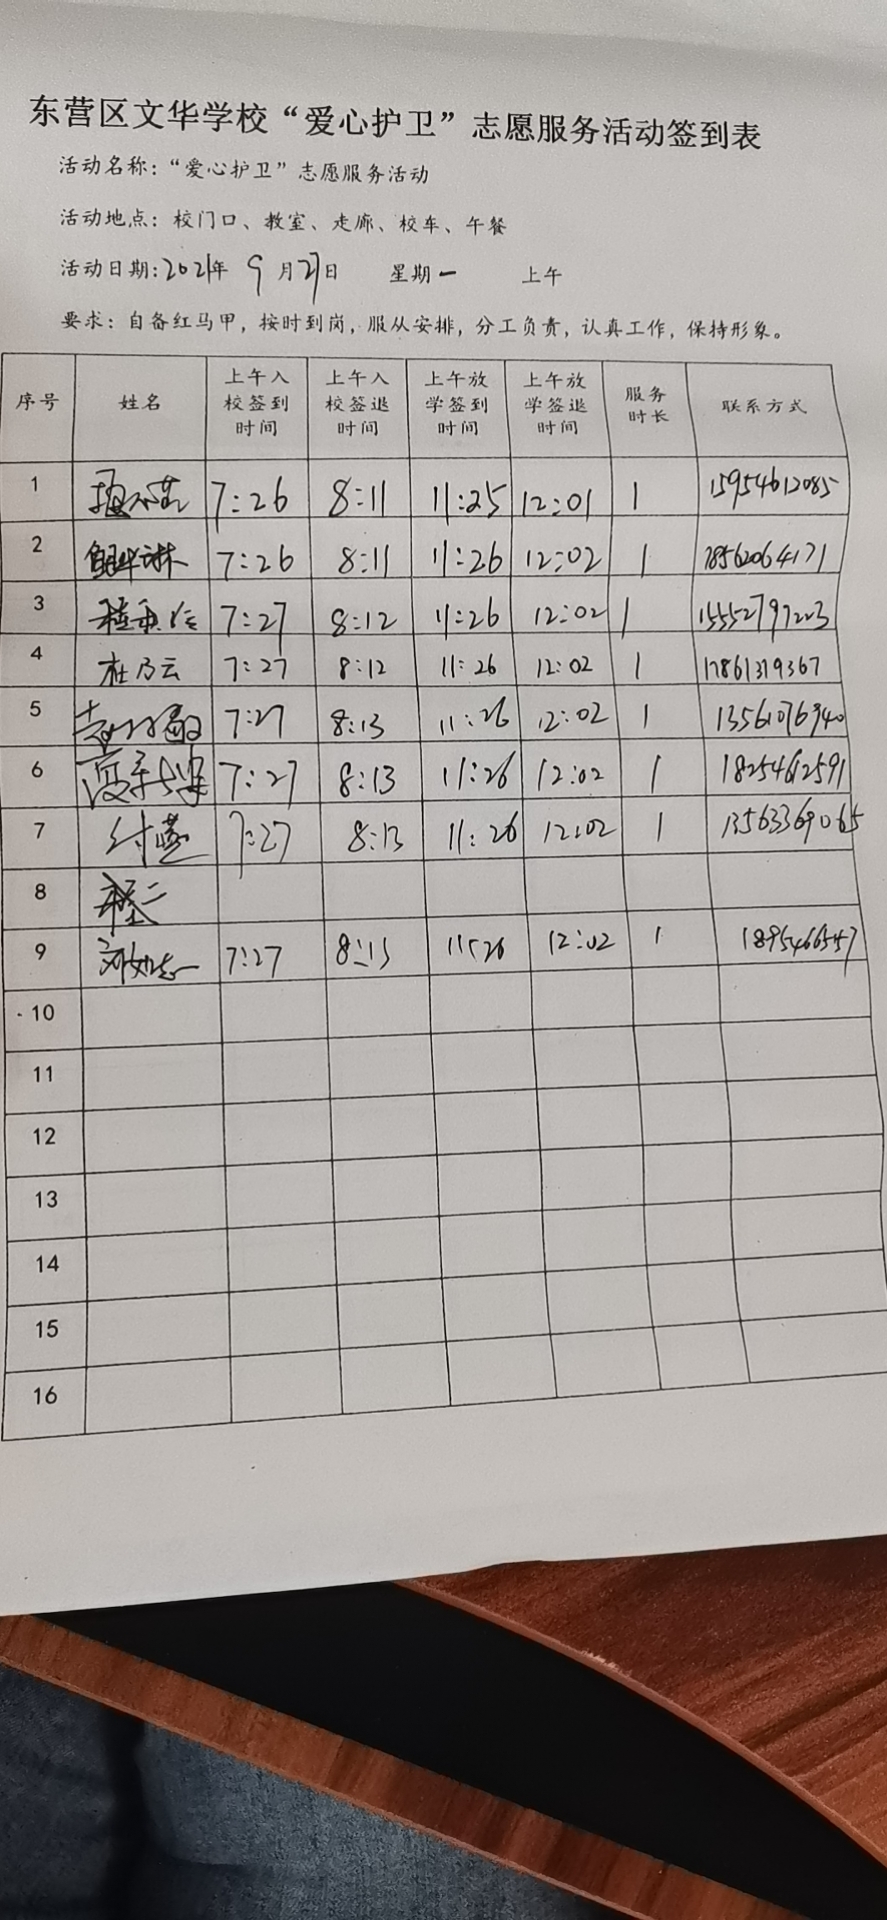 东营区文华学校“爱心护卫”志愿服务活动签到表
活动名称：“爱心护卫”志愿服务活动
活动地点：校门口、教室、走廊、校车、午餐
活动日期：2021年 9 月27日 星期一 上午
要求：自备红马甲，按时到岗，服从安排，分工负责，认真工作，保持形象。
序号 姓名 上午入校签到时间 上午入校签退时间 上午放学签到时间 上午放学签退时间 服务时长 联系方式
1 7:26 8:11 11:25 12:01 1 15954612085
2 7:26 8:11 11:26 12:02 1 18562064171
3 7:27 8:12 11:26 12:02 1
4 杜乃云 7:27 8:12 11:26 12:02 1 17861319367
5 7:27 8:13 11:26 12:02 1 13561076940
6 7:27 8:13 11:26 12:02 1 18254612591
7 付燕 7:27 8:13 11:26 12:02 1 13563369065
8
9 7:27 8:13 11:26 12:02 1
10
11
12
13
14
15
16